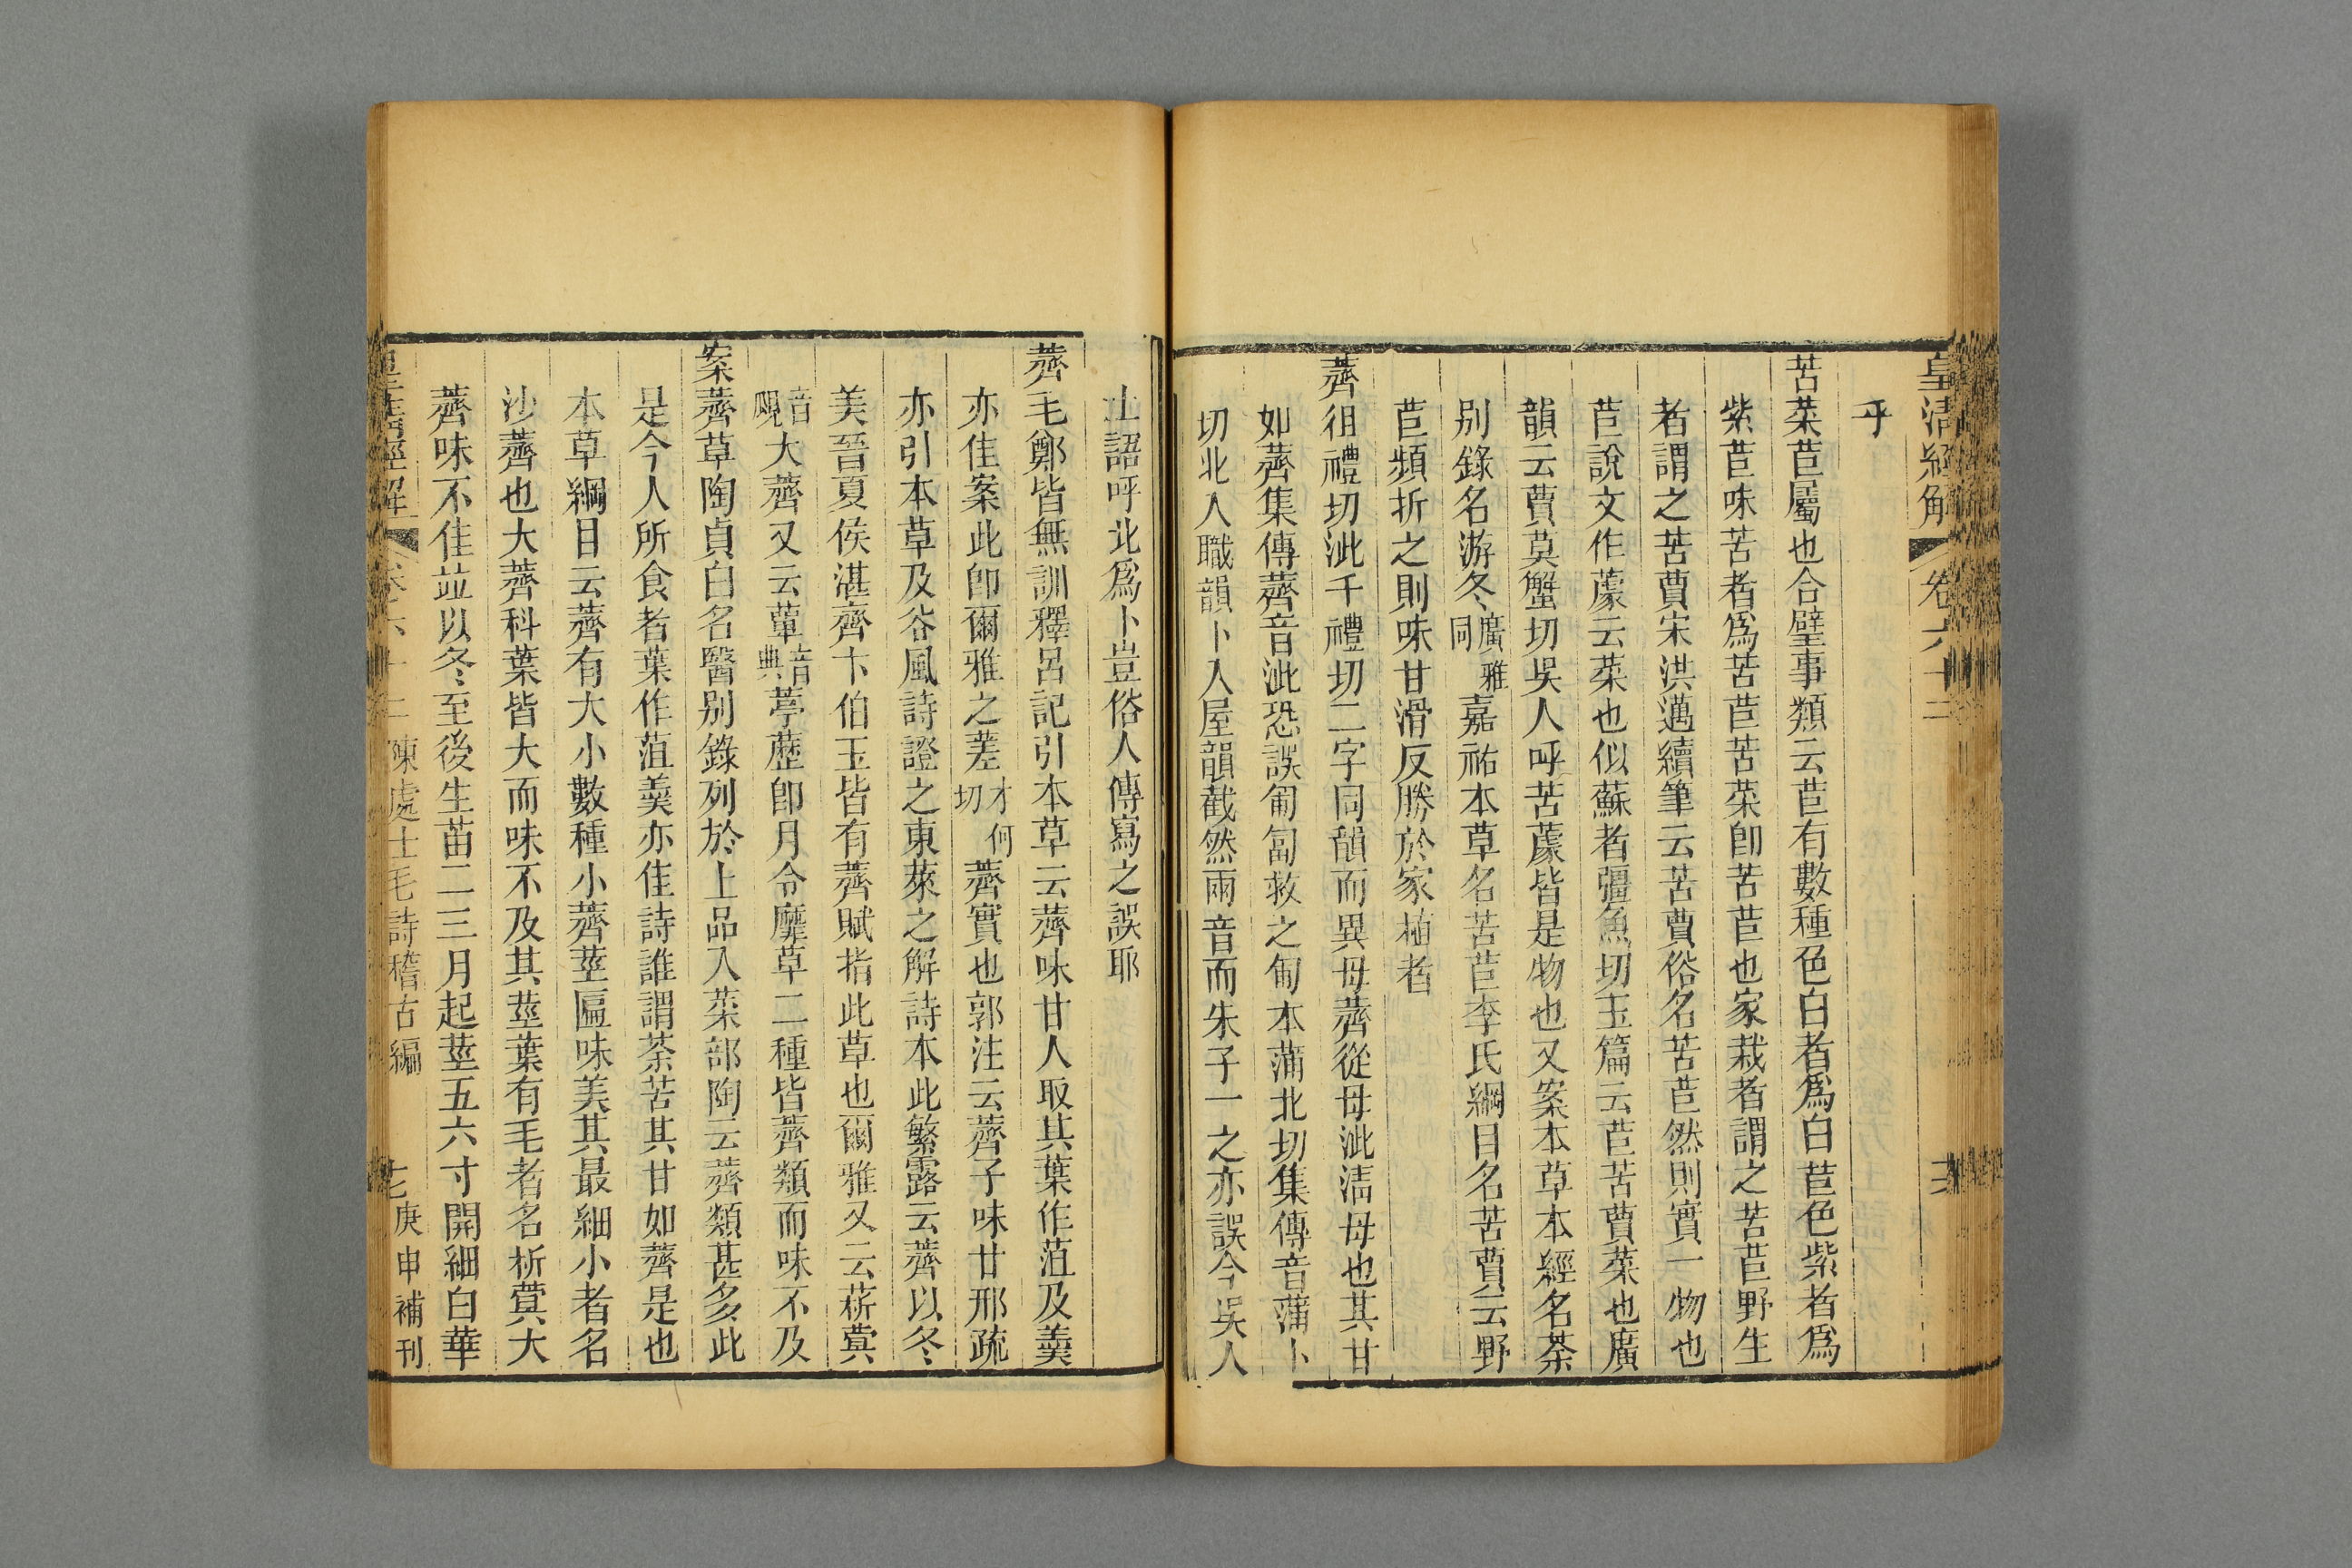 皇清經解 卷六十二
乎
苦菜苣屬也合璧事類云苣有數種色白者爲白苣色紫者爲
紫苣味苦者爲苦苣苦菜卽苦苣也家栽者謂之苦苣野生
者謂之苦蕒宋洪邁續筆云苦蕒俗名苦苣然則實一物也
苣說文作蘧云菜也似蘇者彊魚切玉篇云苣苦蕒菜也廣
韻云蕒莫蟹切吳人呼苦蘧皆是物也又案本草本經名荼
别錄名游冬廣雅同嘉祐本草名苦苣李氏綱目名苦蕒云野
苣頻折之則味甘滑反勝於家植者
薺徂禮切泚千禮切二字同韻而異母薺從母泚淸母也其甘
如薺集傳薺音泚恐誤匍匐救之匍本蒲北切集傳音蒲卜
切北入職韻卜入屋韻截然兩音而朱子一之亦誤今吳人
土語呼北爲卜豈俗人傳寫之誤耶
薺毛鄭皆無訓釋呂記引本草云薺味甘人取其葉作菹及羹
亦佳案此卽爾雅之蒫才何切薺實也郭注云薺子味甘邢疏
亦引本草及谷風詩證之東萊之解詩本此繁露云薺以冬
美晉夏侯湛齊卞伯玉皆有薺賦指此草也爾雅又云菥蓂
音覭大薺又云蕇音典葶藶卽月令靡草二種皆薺類而味不及
案薺草陶貞白名醫别錄列於上品入菜部陶云薺類甚多此
是今人所食者葉作菹羹亦佳詩誰謂荼苦其甘如薺是也
本草綱目云薺有大小數種小薺莖匾味美其最細小者名
沙薺也大薺科葉皆大而味不及其莖葉有毛者名菥蓂大
薺味不佳竝以冬至後生苗二三月起莖五六寸開細白華
皇淸經解 卷六十二 陳處士毛詩稽古編 庚申補刊